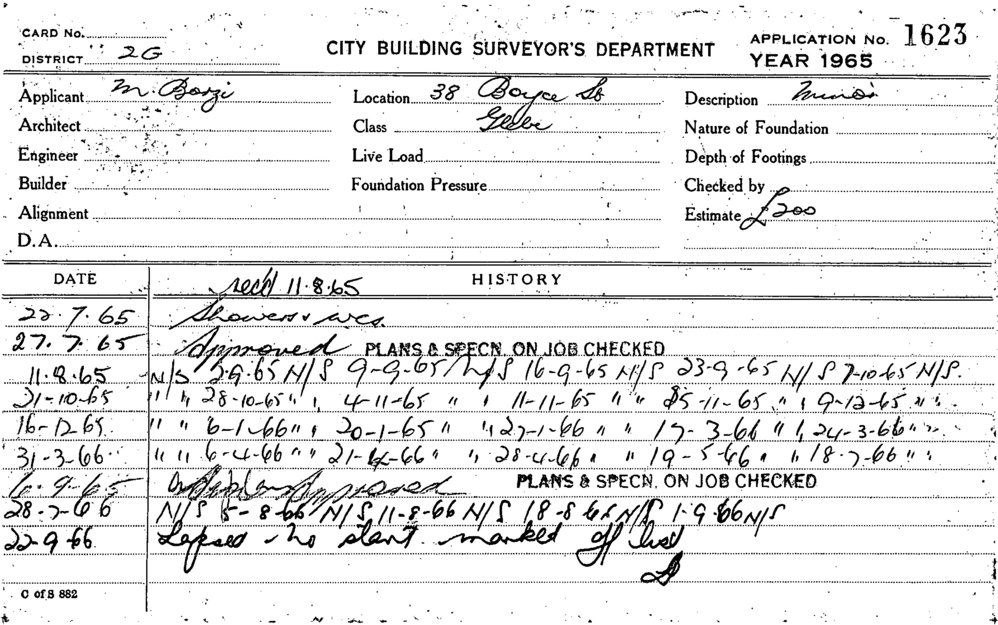 CARD No.
DISTRICT 2G
CITY BUILDING SURVEYOR'S DEPARTMENT
APPLICATION No. 1623
YEAR 1965
Applicant M. Borzi
Location 38 Boyce St
Description Minor
Architect
Class Glebe
Nature of Foundation
Engineer
Live Load
Depth of Footings
Builder
Foundation Pressure
Checked by
Alignment
Estimate £200
D.A.
DATE HISTORY
recd 11.8.65
22.7.65 Showers & wcs.
27.7.65 Approved PLANS & SPECN. ON JOB CHECKED
11.8.65 N/S 2-9-65 N/S 9-9-65 N/S 16-9-65 N/S 23-9-65 N/S 7-10-65 N/S.
21-10-65 " " 28-10-65 " " 4-11-65 " " 11-11-65 " " 25-11-65 " " 9-12-65 " "
16-12-65 " " 6-1-66 " " 20-1-65 " " 27-1-66 " " 17-3-66 " " 24-3-66 " "
31-3-66 " " 6-4-66 " " 21-4-66 " " 28-4-66 " " 19-5-66 " " 18-7-66 " "
6-9-65 Approved PLANS & SPECN. ON JOB CHECKED
28-7-66 N/S 5-8-66 N/S 11-8-66 N/S 18-8-66 N/S 1-9-66 N/S
22-9-66 Lapsed no start marked off list
C of S 882